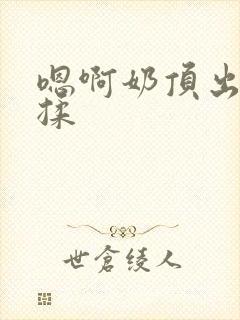 嗯啊奶頂出
揉
世倉綾人